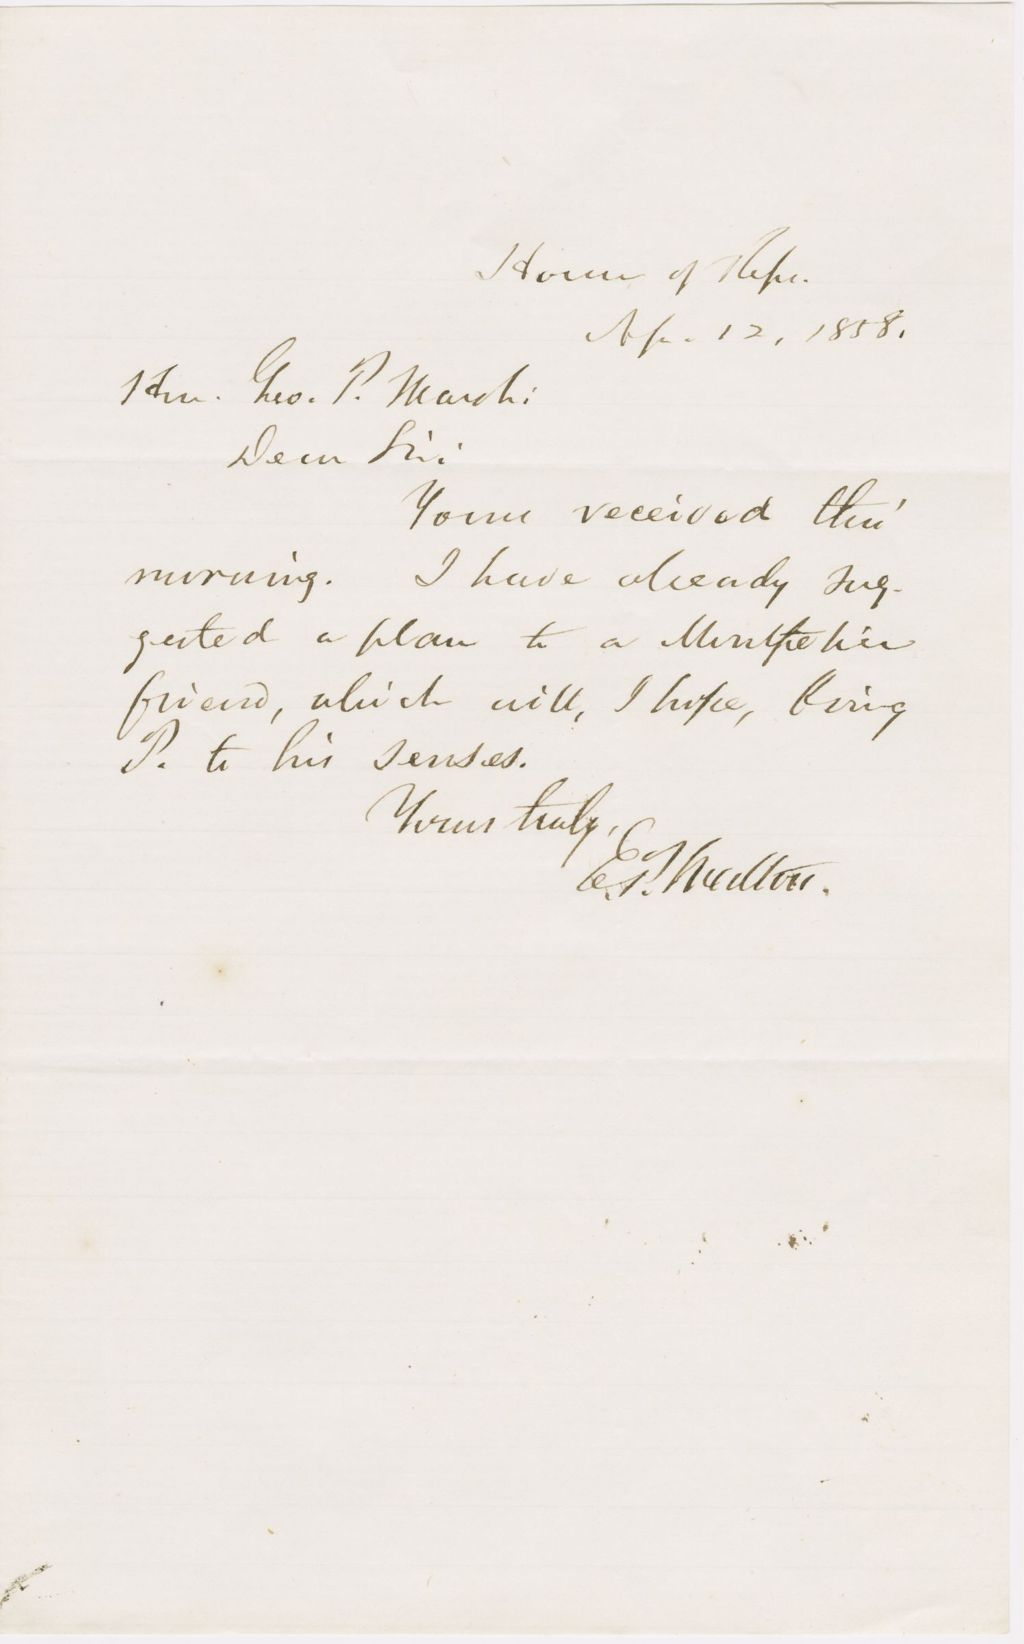 House of Reps.
Ap. 12, 1858.
Hon. Geo. P. Marsh:
Dear Sir:
Yours received this
morning. I have already sug-
gested a plan to a Montpelier
friend, which will, I hope, bring
P. to his senses.
Yours truly,
E. P. Walton.